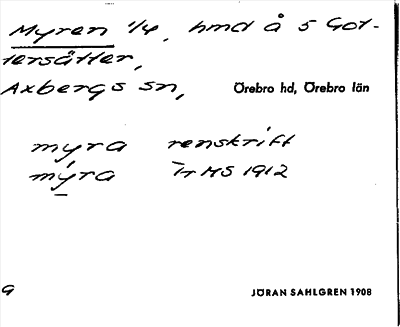 Myren 1/4, hmd å 5 Got-
tersätter,
Axbergs sn, Örebro hd, Örebro län
myra renskrift
mýra Tr MS 1912
9 JÖRAN SAHLGREN 1908